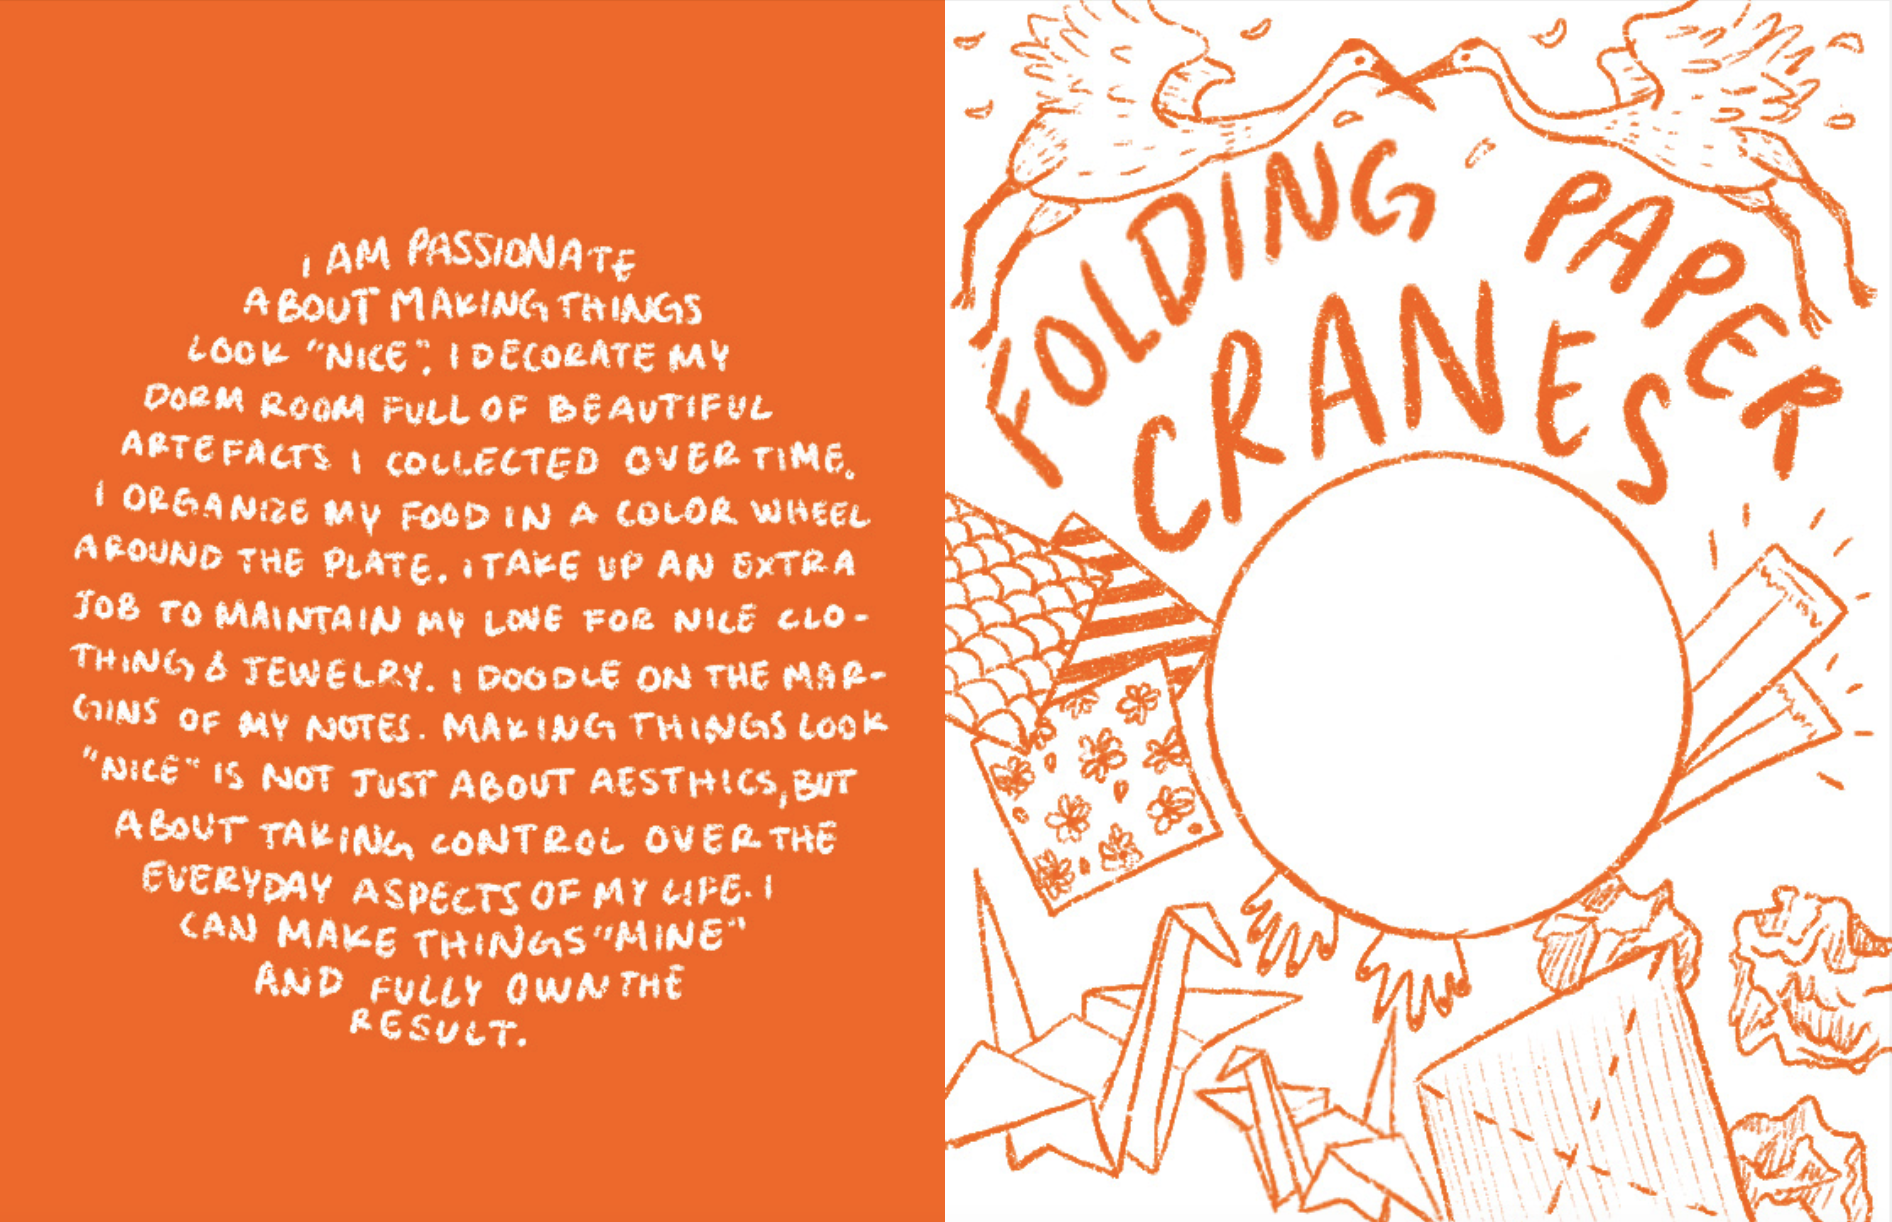 I AM PASSIONATE
ABOUT MAKING THINGS
LOOK "NICE". I DECORATE MY
DORM ROOM FULL OF BEAUTIFUL
ARTEFACTS I COLLECTED OVER TIME.
I ORGANIZE MY FOOD IN A COLOR WHEEL
AROUND THE PLATE. I TAKE UP AN EXTRA
JOB TO MAINTAIN MY LOVE FOR NICE CLO-
THING & JEWELRY. I DOODLE ON THE MAR-
GINS OF MY NOTES. MAKING THINGS LOOK
"NICE" IS NOT JUST ABOUT AESTHICS, BUT
ABOUT TAKING CONTROL OVER THE
EVERYDAY ASPECTS OF MY LIFE. I
CAN MAKE THINGS "MINE"
AND FULLY OWN THE
RESULT.
FOLDING PAPER
CRANES